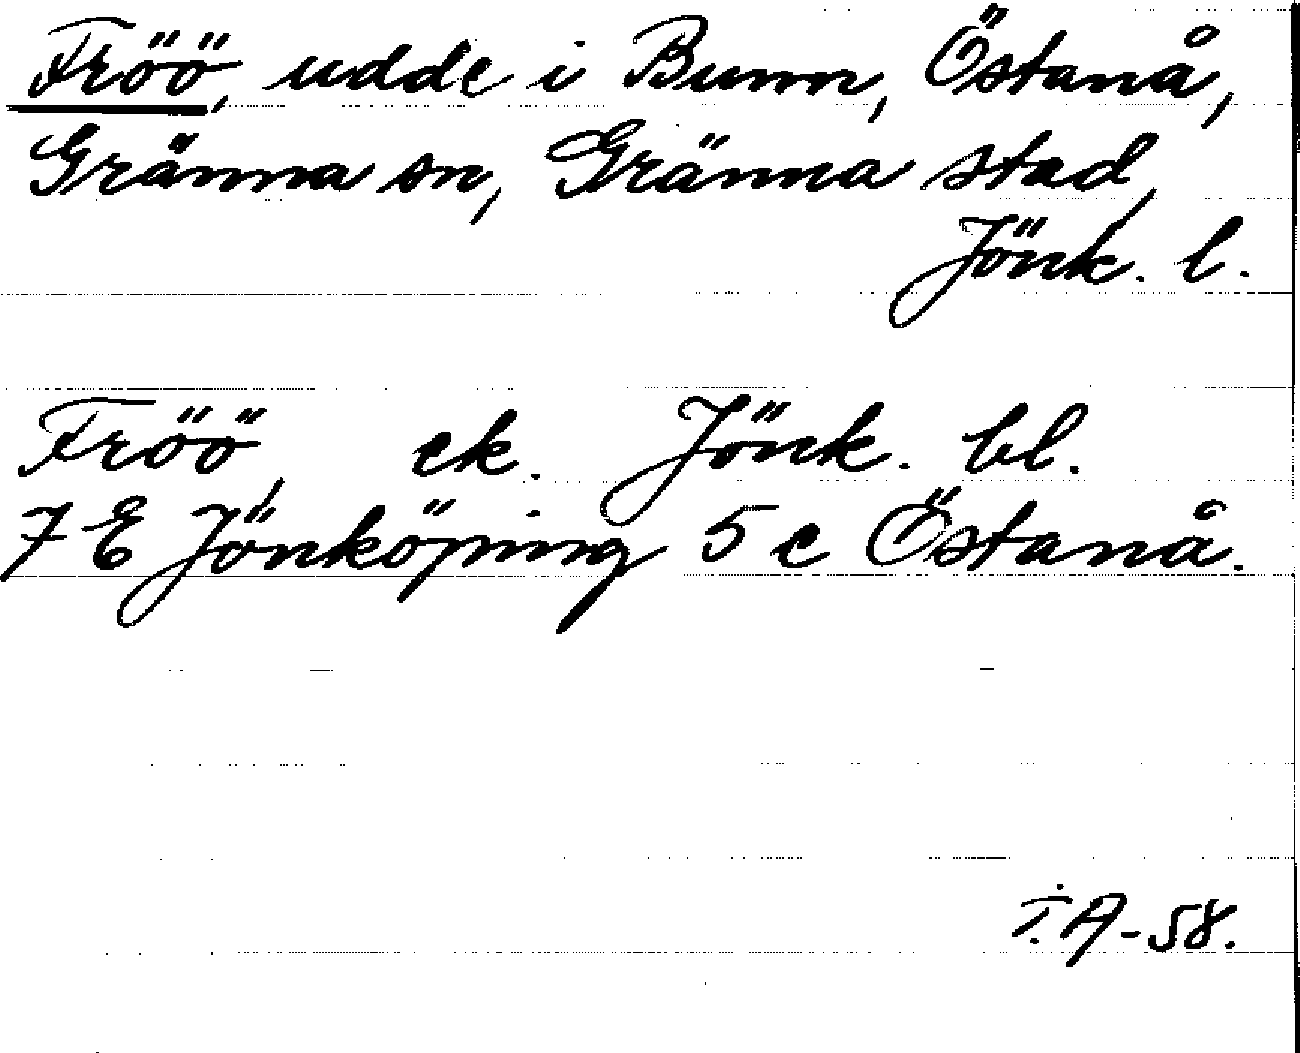 Fröö, udde i Bunn, Östanå,
Gränna sn, Gränna stad,
Jönk. l.
Fröö, ek. Jönk. bl.
7 E Jönköping 5 c Östanå.
T.A-58.